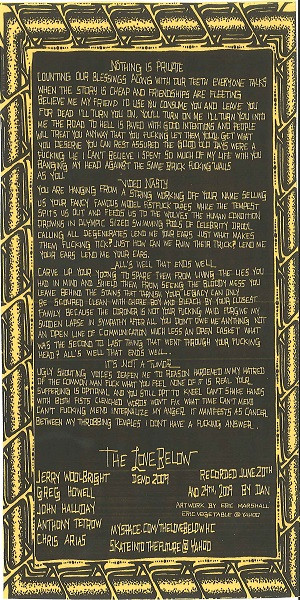 NOTHING IS PRIVATE
COUNTING OUR BLESSINGS ALONG WITH OUR TEETH EVERYONE TALKS
WHEN THE STORY IS CHEAP AND FRIENDSHIPS ARE FLEETING
BELIEVE ME MY FRIEND I'D USE YOU CONSUME YOU AND LEAVE YOU
FOR DEAD I'LL TURN YOU ON, YOU'LL TURN ON ME I'LL TURN YOU INTO
ME THE ROAD TO HELL IS PAVED WITH GOOD INTENTIONS AND PEOPLE
WILL TREAT YOU ANYWAY THAT YOU FUCKING LET THEM YOU'LL GET WHAT
YOU DESERVE YOU CAN REST ASSURED THE GOOD OLD DAYS WERE A
FUCKING LIE I CAN'T BELIEVE I SPENT SO MUCH OF MY LIFE WITH YOU
BANGING MY HEAD AGAINST THE SAME BRICK FUCKING WALLS
AS YOU
VIDEO NASTY
YOU ARE HANGING FROM A STRING WORKING OFF YOUR NAME SELLING
US YOUR FANCY FAMOUS MODEL FUCK DUDES WHILE THE TEMPEST
SPITS US OUT AND FEEDS US TO THE WOLVES THE HUMAN CONDITION
DROWNS IN OLYMPIC SIZED SWIMMING POOLS OF CELEBRITY DROOL
CALLING ALL DEGENERATES LEND ME YOUR EARS JUST WHAT MAKES
THEM FUCKING TICK? JUST HOW CAN WE RUIN THEIR TRICK? LEND ME
YOUR EARS LEND ME YOUR EARS.
ALL'S WELL THAT ENDS WELL
CARVE UP YOUR YOUNG TO SPARE THEM FROM LIVING THE LIES YOU
HAD IN MIND AND SHIELD THEM FROM SEEING THE BLOODY MESS YOU
LEAVE BEHIND THE STAINS THAT TARNISH YOUR LEGACY CAN ONLY
BE SCOURED CLEAN WITH GREASE AND BLEACH BY YOUR CLOSEST
FAMILY BECAUSE THE CORONER IS NOT YOUR FUCKING MAID FORGIVE MY
SUDDEN LAPSE IN SYMPATHY AFTER ALL YOU DON'T OWE ME ANYTHING NOT
AN OPEN LINE OF COMMUNICATION MUCH LESS AN OPEN CASKET WHAT
WAS THE SECOND TO LAST THING THAT WENT THROUGH YOUR FUCKING
HEAD? ALL'S WELL THAT ENDS WELL.
IT'S NOT A TUMOR
UGLY SHOUTING VOICES DEAFEN ME TO REASON HARDENED IN MY HATRED
OF THE COMMON MAN FUCK WHAT YOU FEEL NONE OF IT IS REAL YOUR
SUFFERING IS OPTIONAL AND YOU STILL OPT TO KNEEL CAN'T SHAKE HANDS
WITH BOTH FISTS CLENCHED WORDS WON'T FIX WHAT TIME CAN'T MEND
CAN'T FUCKING MEND INTERNALIZE MY ANGER IT MANIFESTS AS CANCER
BETWEEN MY THROBBING TEMPLES I DON'T HAVE A FUCKING ANSWER.
THE LOVE BELOW
DEMO 2009
JERRY WOOLBRIGHT
GREG HOWELL
JOHN HALLIDAY
ANTHONY TETROW
CHRIS ARIAS
RECORDED JUNE 20TH
AND 24TH, 2009 BY DAN
ARTWORK BY ERIC MARSHALL
ERIC VEGETABLE @ YAHOO
MYSPACE.COM/THELOVEBELOWHC
SKATEINTOTHEFUTURE @ YAHOO